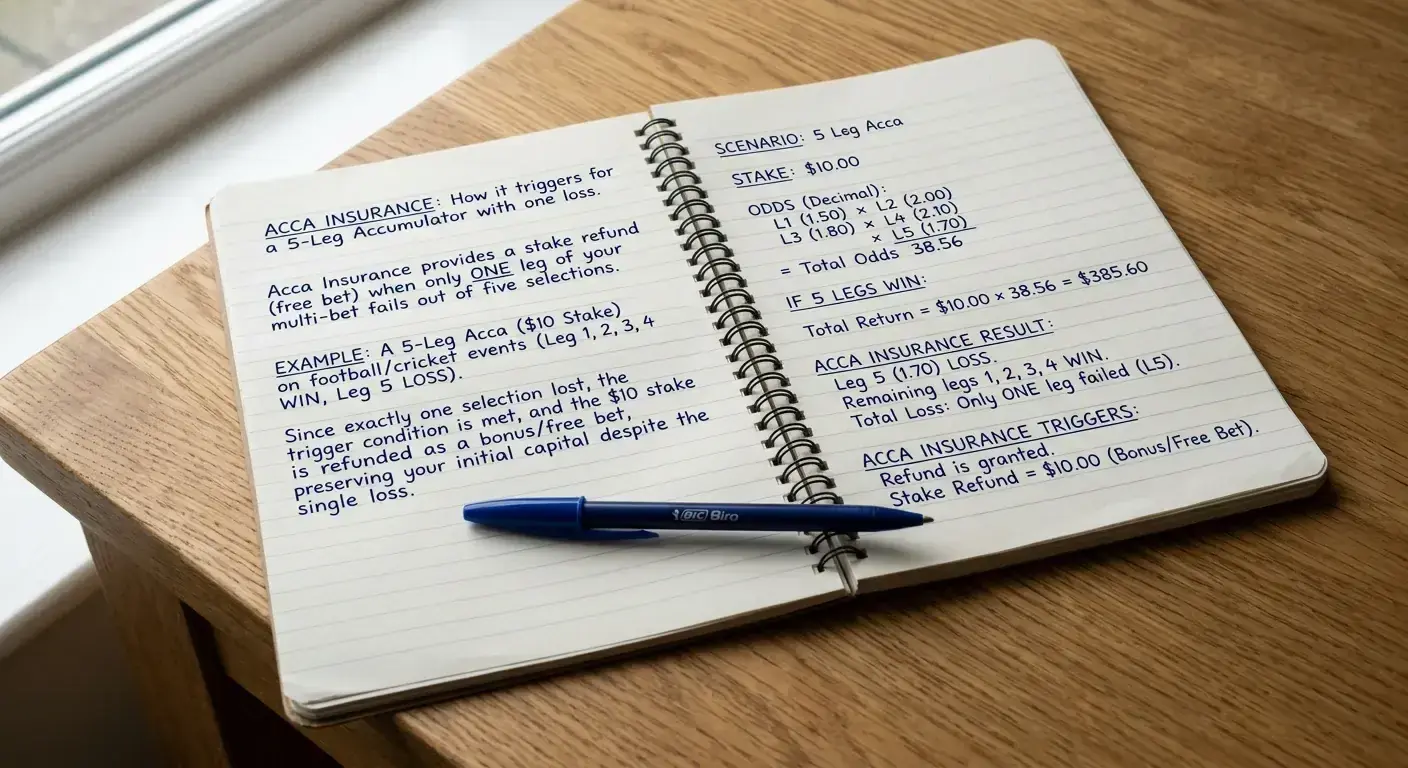 ACCA INSURANCE: How it triggers for
a 5-Leg Accumulator with one loss.
Acca Insurance provides a stake refund
(free bet) when only ONE leg of your
multi-bet fails out of five selections.
EXAMPLE: A 5-Leg Acca ($10 Stake)
on football/cricket events (Leg 1, 2, 3, 4
WIN, Leg 5 LOSS).
Since exactly one selection lost, the
trigger condition is met, and the $10 stake
is refunded as a bonus/free bet,
preserving your initial capital despite the
single loss.
SCENARIO: 5 Leg Acca
STAKE: $10.00
ODDS (Decimal):
L1 (1.50) × L2 (2.00)
L3 (1.80) × L4 (2.10)
× L5 (1.70)
= Total Odds 38.56
IF 5 LEGS WIN:
Total Return = $10.00 × 38.56 = $385.60
ACCA INSURANCE RESULT:
Leg 5 (1.70) LOSS.
Remaining legs 1, 2, 3, 4 WIN.
Total Loss: Only ONE leg failed (L5).
ACCA INSURANCE TRIGGERS:
Refund is granted.
Stake Refund = $10.00 (Bonus/Free Bet).
BIC Biro